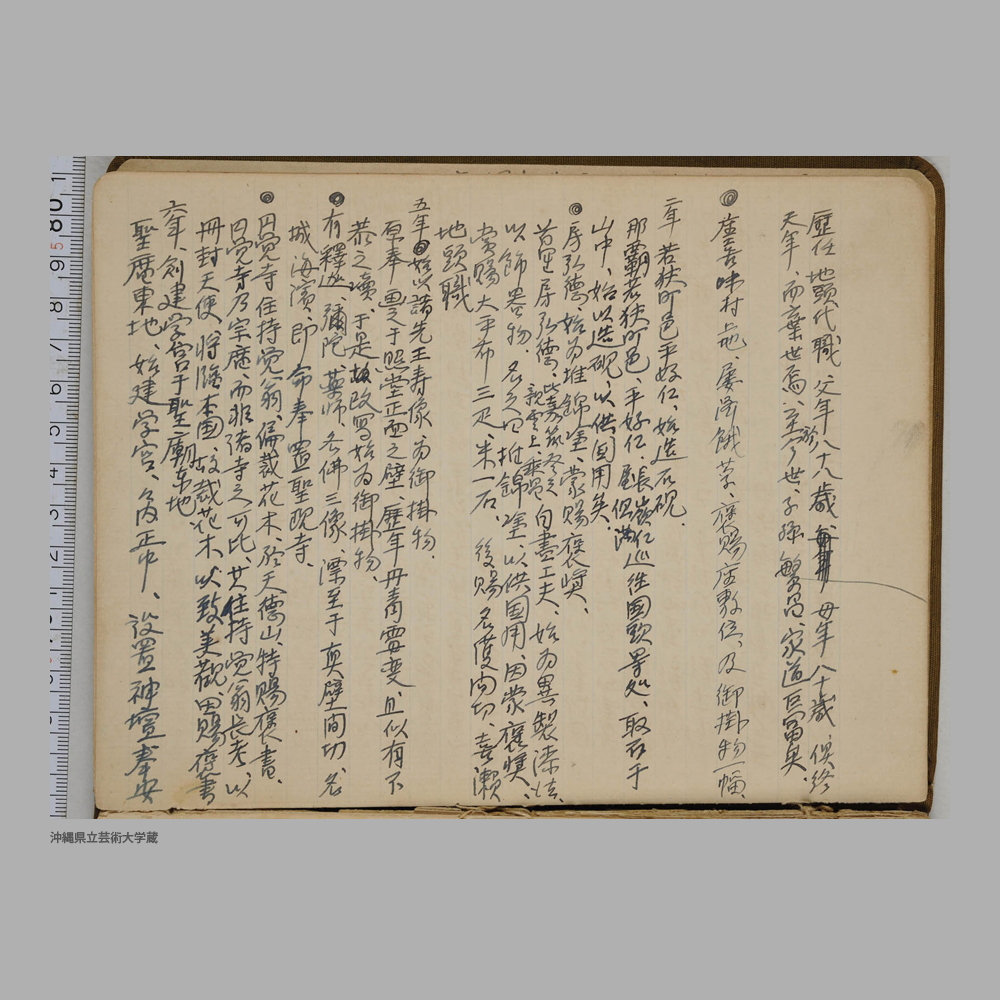 歴任地頭代職、父年八十九歳、母年八十歳、俱終
天年、而棄世焉、至于今世、子孫繁昌、家道巨富矣、
◎座喜味村 、屡済餓莩、褒賜座敷位、及御掛物一幅、
二年 若狭町邑平好仁、始造石硯、
那覇若狭町邑、平好仁 巡往国頭 、取石于
山中、始以造硯、以供国用矣、
◎房弘徳、始為堆錦塗、蒙賜褒奨、
首里房弘徳、 自尽工夫、始為異製漆法、
以飾器物、名之曰堆錦塗、以供国用、因蒙褒奨、
賞賜大平布三疋、米一石、後賜名護間切、喜瀬
地頭職
五年◎始以諸先王寿像、為御掛物、
原奉画之于照堂正面之壁、歴年丹青 変、且似有不
恭之瀆、于是 改写始為御掛物、
◎有釋迦、彌陀、薬師、各佛三像、漂至于真壁間切名
城海濱、即命奉置聖現寺、
◎円覚寺住持覚翁、偏栽花木、於天徳山、特賜褒書、
円覚寺乃宗廟、而非諸寺之可比、其住持覚翁長老、以
冊封天使、将臨本国、故栽花木、以致美観、因賜褒書
六年、創建学宮于聖廟東地、
聖廟東地、始建学宮、内正中、設置神壇奉安
沖縄県立芸術大学蔵